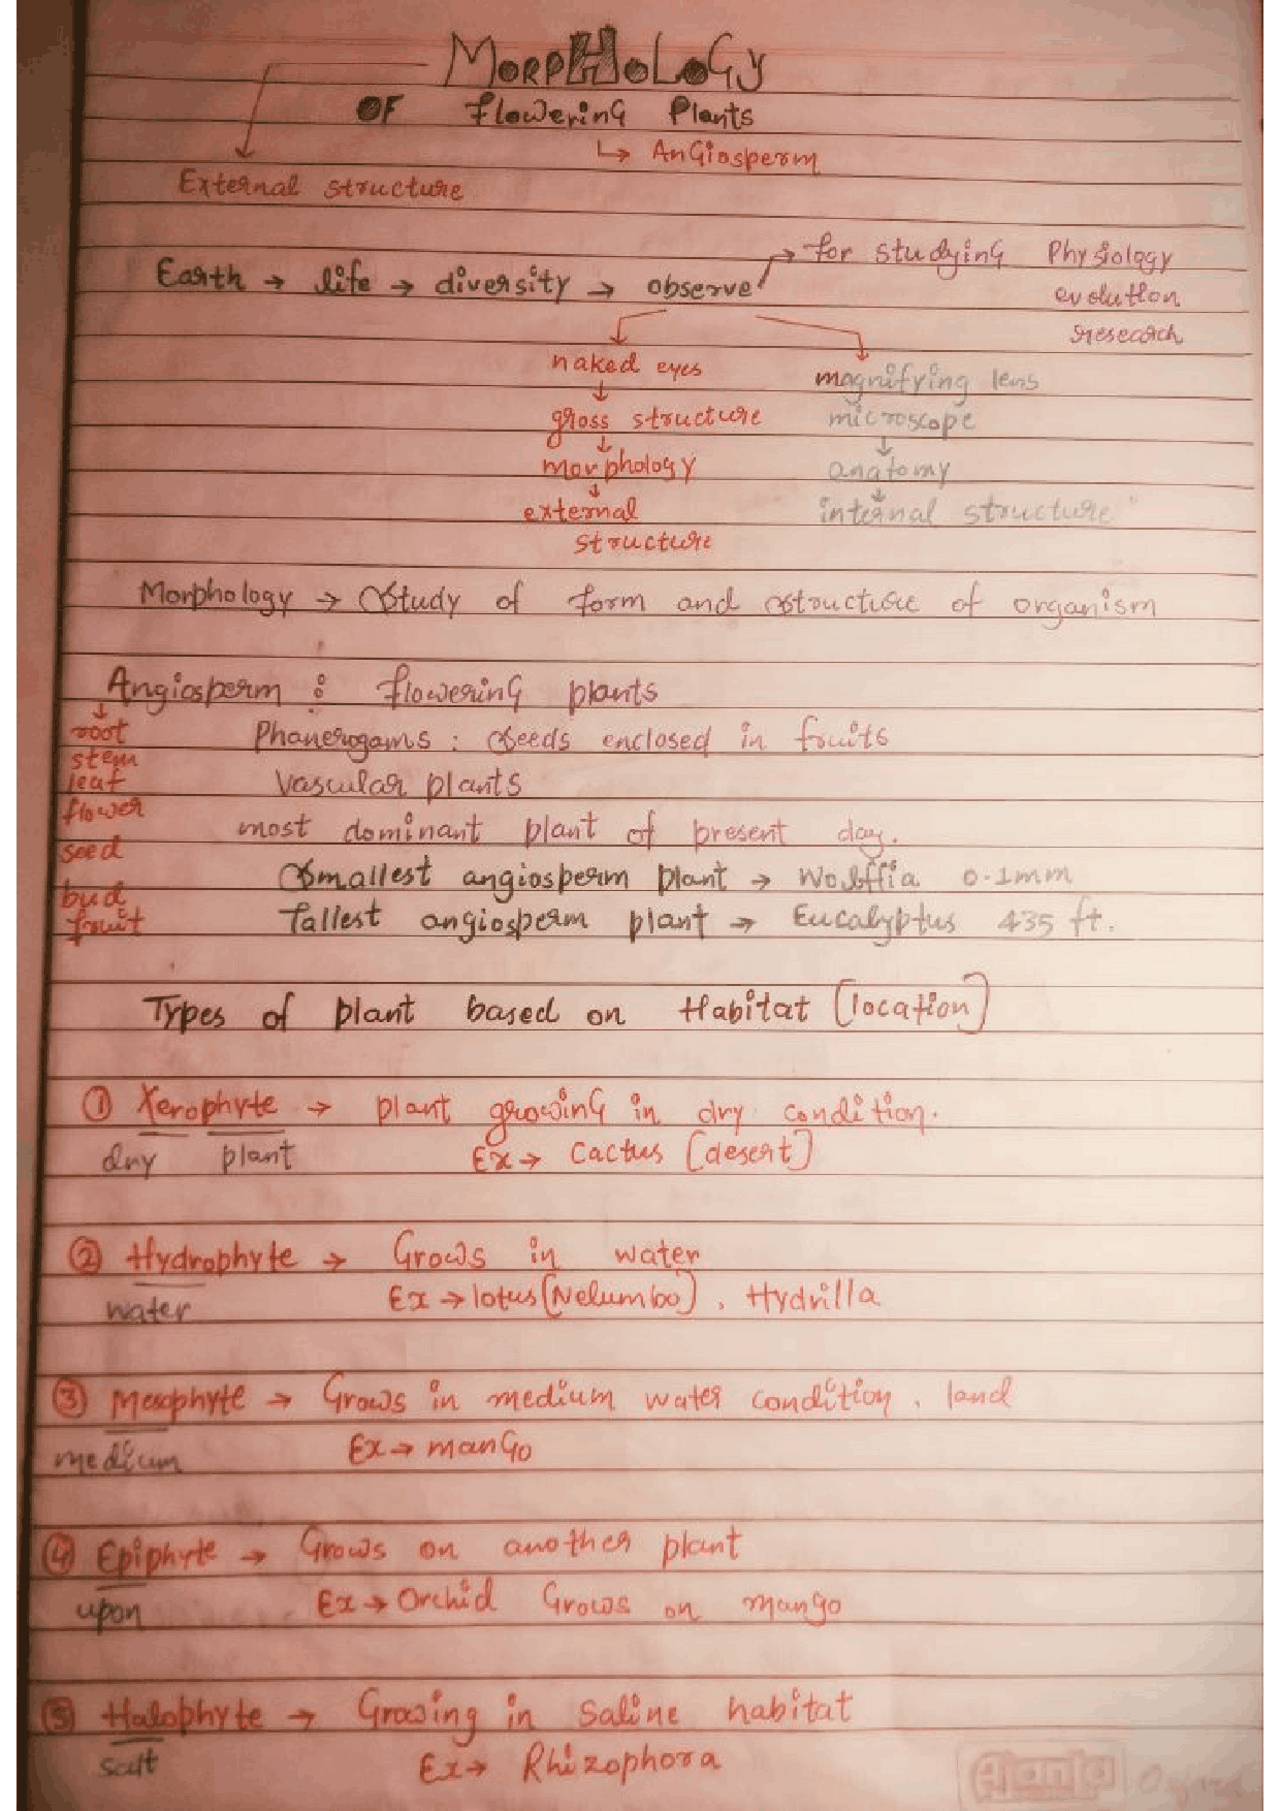 MORPHOLOGY
OF Flowering Plants
↳ Angiosperm
External structure
→ for studying Physiology
Earth → life → diversity → observe
evolution
research
naked eyes
magnifying lens
↓
gross structure
microscope
↓ ↓
morphology
anatomy
↓ ↓
external
internal structure
structure
Morphology → Study of form and structure of organism
Angiosperm : flowering plants
↓
root
Phanerogams : Seeds enclosed in fruits
stem
leaf
Vascular plants
flower
most dominant plant of present day.
seed
Smallest angiosperm plant → Wolffia 0.1mm
bud
fruit
Tallest angiosperm plant → Eucalyptus 435 ft.
Types of plant based on Habitat [location]
① Xerophyte → plant growing in dry condition.
dry plant
Ex → Cactus [desert]
② Hydrophyte → Grows in water
water
Ex → lotus [Nelumbo], Hydrilla
③ Mesophyte → Grows in medium water condition, land
medium
Ex → manGo
④ Epiphyte → Grows on another plant
upon
Ex → Orchid Grows on mango
⑤ Halophyte → Growing in saline habitat
salt
Ex → Rhizophora
Ajanta